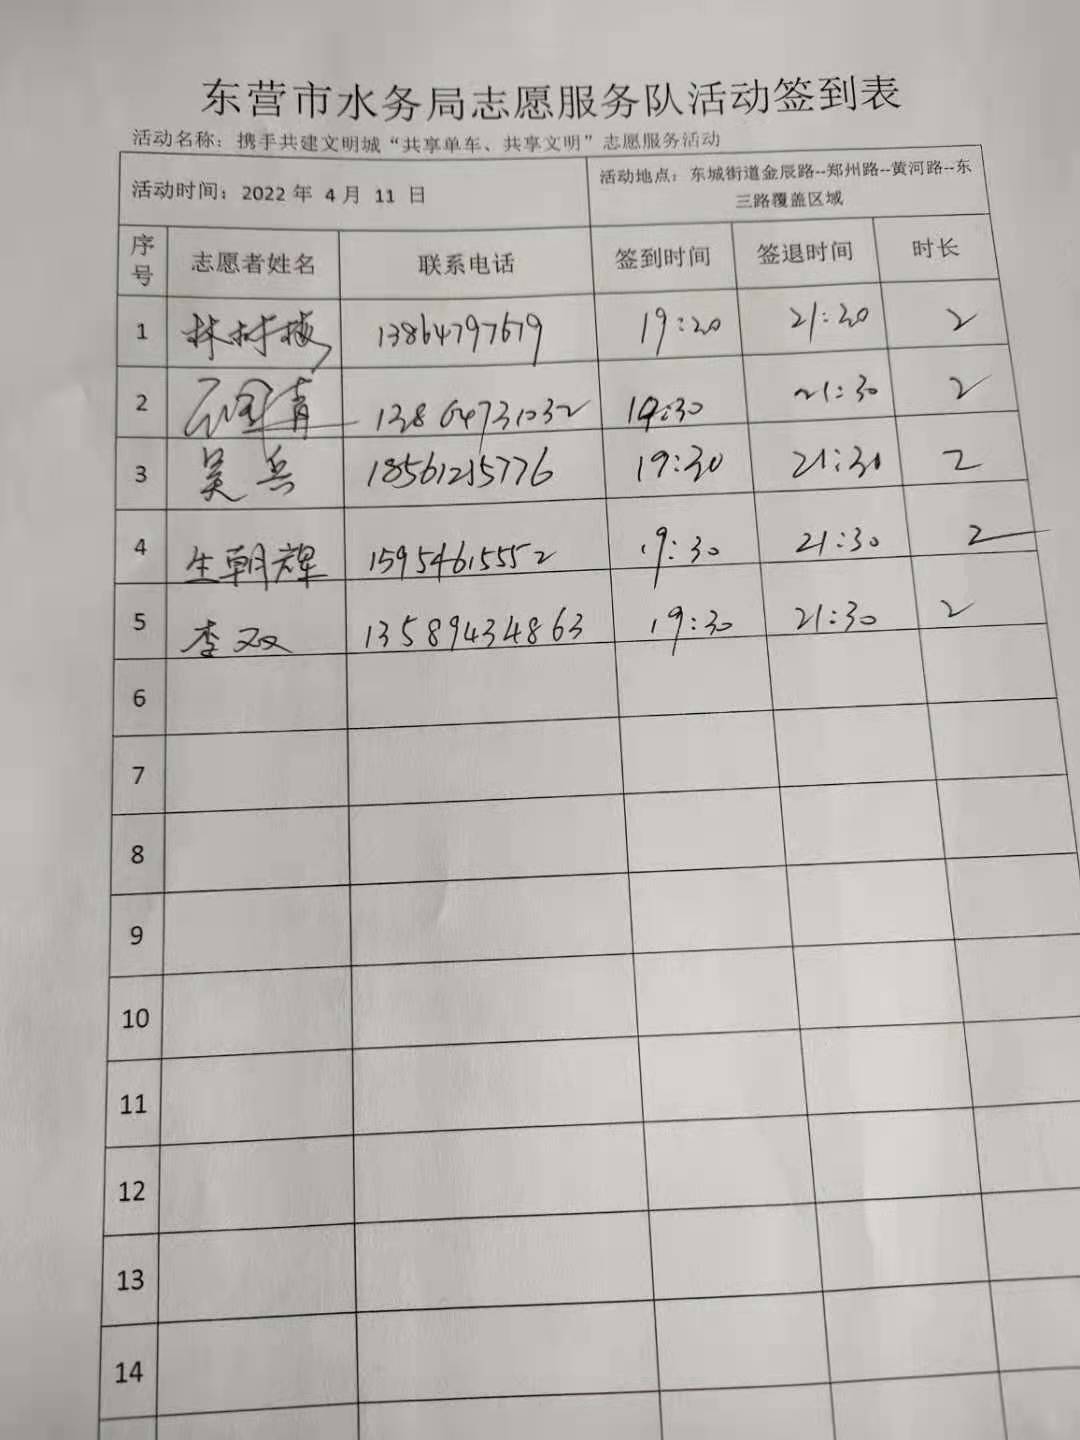 东营市水务局志愿服务队活动签到表
活动名称：携手共建文明城“共享单车、共享文明”志愿服务活动
活动时间：2022 年 4 月 11 日 活动地点：东城街道金辰路--郑州路--黄河路--东
三路覆盖区域
序号 志愿者姓名 联系电话 签到时间 签退时间 时长
1 林树梅 13864797679 19:20 21:20 2
2 13864731032 19:30 21:30 2
3 吴兵 18561215776 19:30 21:30 2
4 生朝辉 15954615552 19:30 21:30 2
5 李双 13589434863 19:30 21:30 2
6
7
8
9
10
11
12
13
14